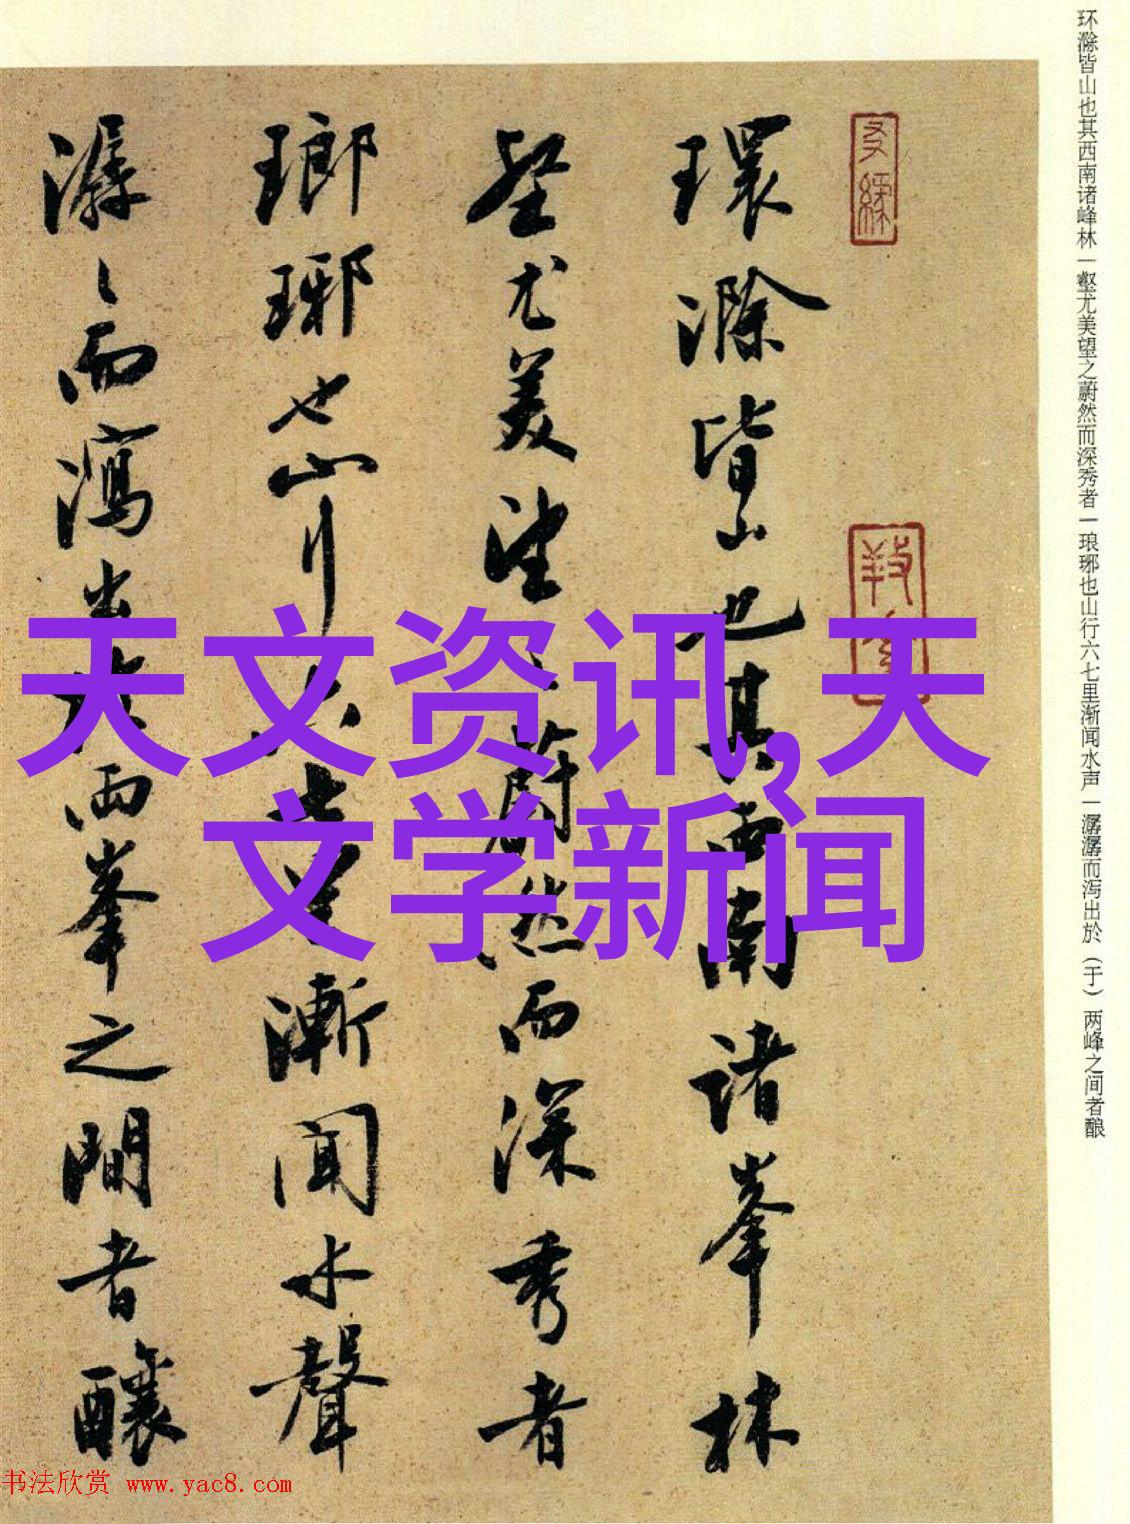 环滁皆山也其西南诸峰林一壑尤美望之蔚然而深秀者一琅琊也山行六七里渐闻水声一潺潺而泻出於（于）两峰之间者酿
環滁皆山也其西南諸峯林
壑尤美望之蔚然而深秀者
瑯琊也山行六七里漸聞水聲
潺々而瀉出於兩峯之間者釀
天文资讯,天
文学新闻
书法欣赏 www.yac8.com